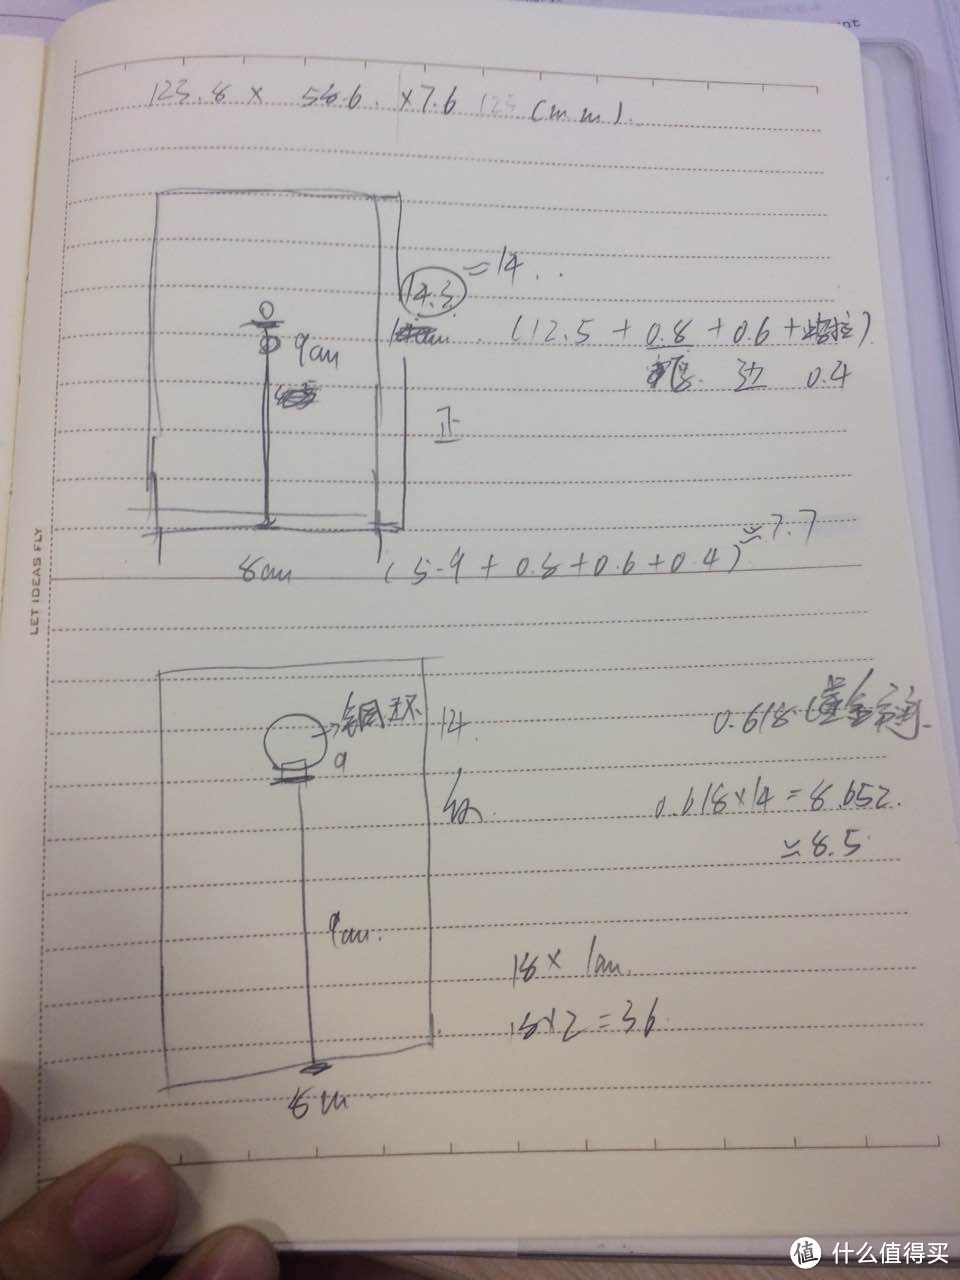 nt
123.8 × 58.6 × 7.6 123 (mm).
14.3 = 14 . .
(12.5 + 0.8 + 0.6 +
9cm
边 0.4
正
≈7.7
8cm (5.9 + 0.8 + 0.6 + 0.4)
LET IDEAS FLY
铜环 14.
0.618
9
0.618×14 = 8.652.
≈ 8.5
9cm.
18 × 1cm.
18×2 = 36
8cm
值 什么值得买